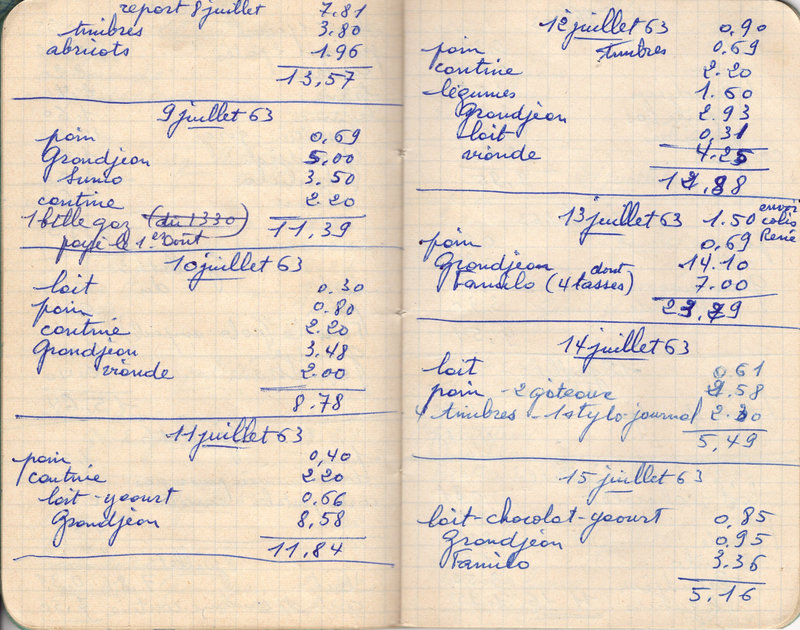 report 8 juillet 7.81
timbres 3.80
abricots 1.96
13,57
9 juillet 63
pain 0,69
Grandjean 5,00
Sumo 3.50
cantine 2.20
1 btlle gaz (du 1330) 11,39
payé le 1er août
10 juillet 63
lait 0.30
pain 0.80
cantine 2.20
Grandjean 3,48
viande 2.00
8.78
11 juillet 63
pain 0,40
cantine 2.20
lait - yaourt 0,66
Grandjean 8,58
11,84
12 juillet 63 0,90
pain timbres 0.69
cantine 2.20
légumes 1.60
Grandjean 2.93
lait 0,31
viande 4.25
12,88
13 juillet 63 1.50 envoi colis René
pain 0,69
Grandjean 14.10
Familo (dont 4 tasses) 7.00
23,29
14 juillet 63
lait 0,61
pain - 2 gâteaux 2.58
4 timbres - 1 stylo-journal 2.30
5,49
15 juillet 63
lait - chocolat - yaourt 0,85
Grandjean 0,95
Familo 3.36
5,16